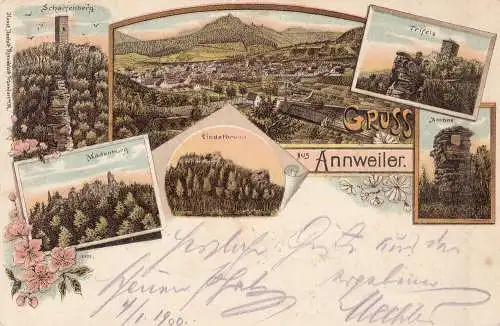 Scharfenberg.
Trifels
GRUSS
aus Annweiler.
Anebos
Madenburg
Lindelbrunn
Herzliche Grüße aus der
schönen Pfalz
ergebener
4/1 1900.